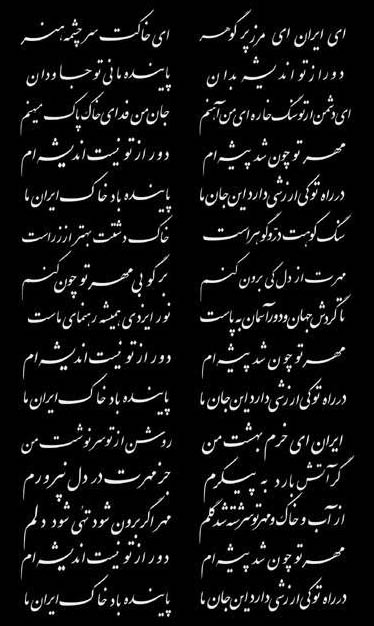 ای ایران ای مرز پر گوهر
ای خاکت سرچشمه هنر
دور از تو اندیشه بدان
پاینده مانی تو جاودان
ای دشمن ار تو سنگ خاره ای من آهنم
جان من فدای خاک پاک میهنم
مهر تو چون شد پیشه ام
دور از تو نیست اندیشه ام
در راه تو کی ارزشی دارد این جان ما
پاینده باد خاک ایران ما
سنگ کوهت در و گوهر است
خاک دشتت بهتر از زر است
مهرت از دل کی برون کنم
بر گو بی مهر تو چون کنم
تا گردش جهان و دور آسمان بپاست
نور ایزدی همیشه رهنمای ماست
مهر تو چون شد پیشه ام
دور از تو نیست اندیشه ام
در راه تو کی ارزشی دارد این جان ما
پاینده باد خاک ایران ما
ایران ای خرم بهشت من
روشن از تو سرنوشت من
گر آتش بارد به پیکرم
جز مهرت در دل نپرورم
از آب و خاک و مهر تو سرشته شد گلم
مهر اگر برون شود تهی شود دلم
مهر تو چون شد پیشه ام
دور از تو نیست اندیشه ام
در راه تو کی ارزشی دارد این جان ما
پاینده باد خاک ایران ما